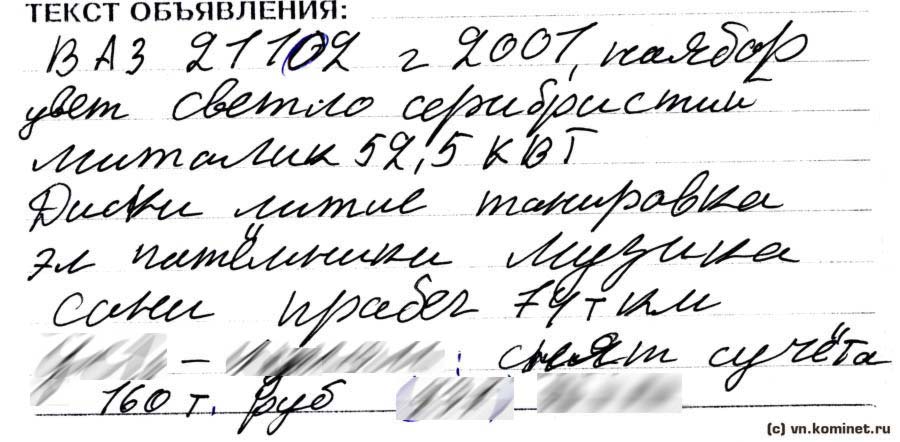 ТЕКСТ ОБЪЯВЛЕНИЯ:
ВАЗ 21102 г 2001, наябор
цвет светло серибристий
миталик 52,5 КВТ
Диски литие танировка
эл патёмники музика
сони прабег 74т км
– : снят сучёта
160 т. руб
(c) vn.kominet.ru